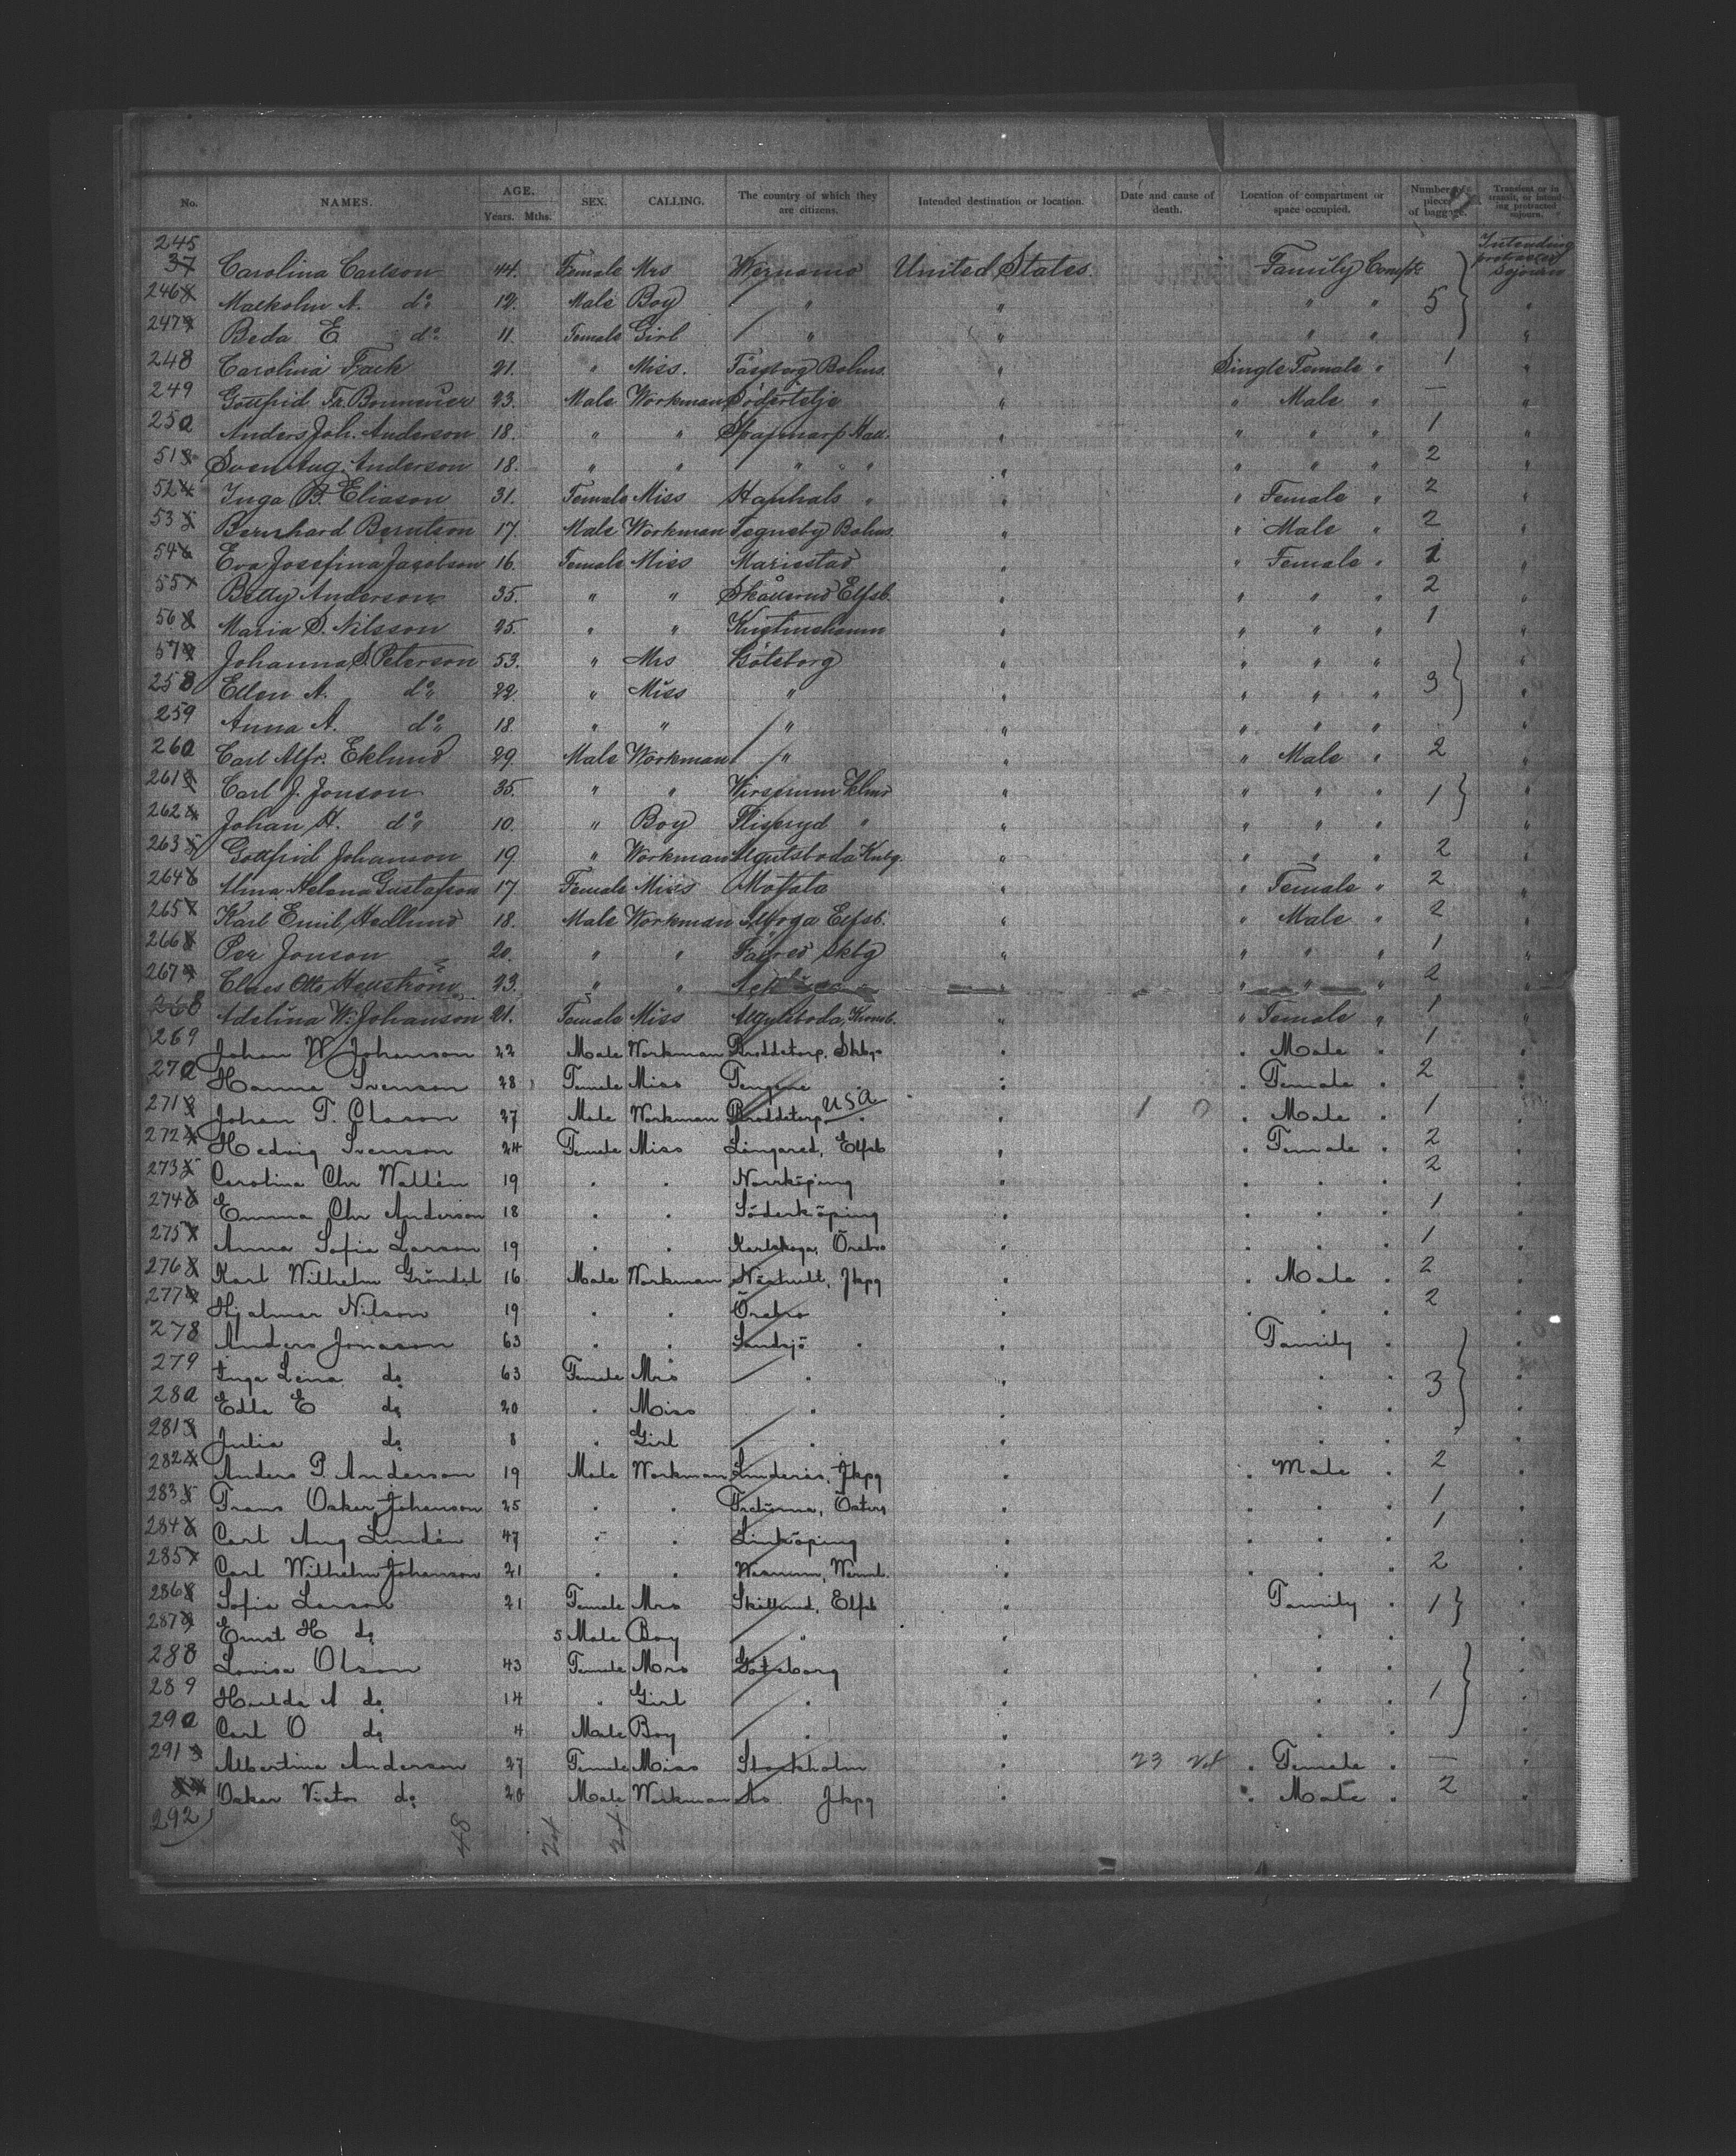 No. NAMES. AGE. Years. Mths. SEX. CALLING. The country of which they are citizens. Intended destination or location. Date and cause of death. Location of compartment or space occupied. Number of pieces of baggage. Transient or in transit, or intending protracted sojourn.
245 37 Carolina Carlson 44. Female Mrs Wernamo United States Family Compte Intending protracted Sojourn
246 Malkolm A. do 12. Male Boy " " " " 5 "
247 Beda E do 11. Female Girl " " " " "
248 Carolina Fack 21. " Miss. Bohus. " Single Female " 1 "
249 Gottfrid Fr. 23. Male Workman Södertelje " " Male " — "
250 Anders Joh. Anderson 18. " " Hall. " " " " 1 "
51 Sven Aug. Anderson 18. " " " " " " " " 2 "
52 Inga B. Eliason 31. Female Miss Hanhals " " " Female " 2 "
53 Bernhard Berntson 17. Male Workman Tegneby Bohus. " " Male " 2 "
54 Eva Josefina Jacobson 16. Female Miss Mariestad " " Female " "
55 Betty Anderson 35. " " Skållerud Elfsb. " " " " 2 "
56 Maria S. Nilsson 25. " " Kristinehamn " " " " 1 "
57 Johanna S. Peterson 53. " Mrs Göteborg " " " " "
258 Ellen A. do 22. " Miss " " " " " 3 "
259 Anna A. do 18. " " " " " " " "
260 Carl Alfr. Eklund 29 Male Workman " " " Male " 2 "
261 Carl J. Jonson 35. " " Wirserum Klmr " " " " 1 "
262 Johan H. do 10. " Boy Fliseryd " " " " " "
263 Gottfrid Johanson 19 " Workman Algutsboda Knbg. " " " " 2 "
264 Alma Helena Gustafson 17 Female Miss Motala " " Female " 2 "
265 Karl Emil Hedlund 18. Male Workman Elfsb. " " Male " 2 "
266 Per Jonson 20. " " Fägred Skbg " " " " 1 "
267 Claes Otto Hellström 23. " " " " " 2 "
268 Adelina W. Johanson 21. Female Miss Algutsboda, Kronb. " " Female " 1 "
269 Johan W Johanson 22 Male Workman Broddetorp, Skbg. " " Male " 1 "
270 Hanna Svenson 28 Female Miss Tengene " " " Female " 2 "
271 Johan T. Clason 27 Male Workman Broddetorp USA " " 1 0 " Male " 1 "
272 Hedvig Svenson 24 Female Miss Långared, Elfsb " " Female " 2 "
273 Carolina Chr Wallén 19 " " Norrköping " " " " 2 "
274 Emma Chr Anderson 18 " " Söderköping " " " " 1 "
275 Anna Sofia Larson 19 " " Karlskoga, Örebro " " " " 1 "
276 Karl Wilhelm Gröndal 16 Male Workman Näshult, Jkpg " " Male " 2 "
277 Hjalmar Nilson 19 " " Örebro " " " " 2 "
278 Anders Jonason 63 " " Sandsjö " " Family " "
279 Inga Lena do 63 Female Mrs " " " " "
280 Edla E do 20 " Miss " " " " 3 "
281 Julia do 8 " Girl " " " " "
282 Anders P. Anderson 19 Male Workman Linderås, Jkpg " " Male " 2 "
283 Frans Oskar Johanson 25 " " Östers " " " " 1 "
284 Carl Aug Lindén 47 " " Linköping " " " " 1 "
285 Carl Wilhelm Johanson 21 " " Wärml. " " " " 2 "
286 Sofia Larson 21 Female Mrs Skållerud, Elfsb " Family " 1 "
287 Ernst H do 5 Male Boy " " " " "
288 Lovisa Olson 43 Female Mrs Göteborg " " " " "
289 Hulda A do 14 " Girl " " " " 1 "
290 Carl O do 4 Male Boy " " " " "
291 Albertina Anderson 27 Female Miss Stockholm " 23 " Female " — "
292 Oskar Victor do 20 Male Workman As Jkpg " " Male " 2 "